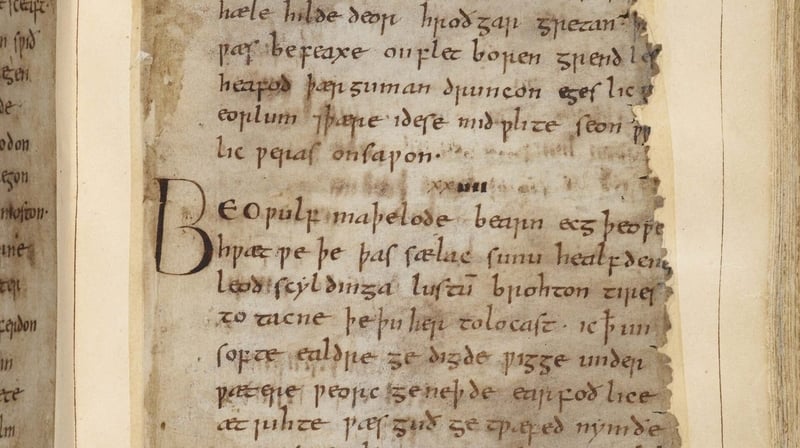 hæle hilde deor hroðgar gretan
ƿæs be feaxe on flet boren grendle
heafod þær guman druncon eges lic
eorlum ⁊ þære idese mid ƿlite seon
lic ƿeras onsaƿon.
xxiiii
BEOƿulf maþelode bearn ecg þeoƿe
hƿæt ƿe þe þas sælac sunu healfdene
leod scyldinga lustū brohton tires
to tacne þe þu her tolocast. ic ꝥ un
softe ealdre ge digde ƿigge under
ƿætere ƿeorc geneþde earfoð lice
æt rihte ƿæs guð ge tƿæfed nymðe